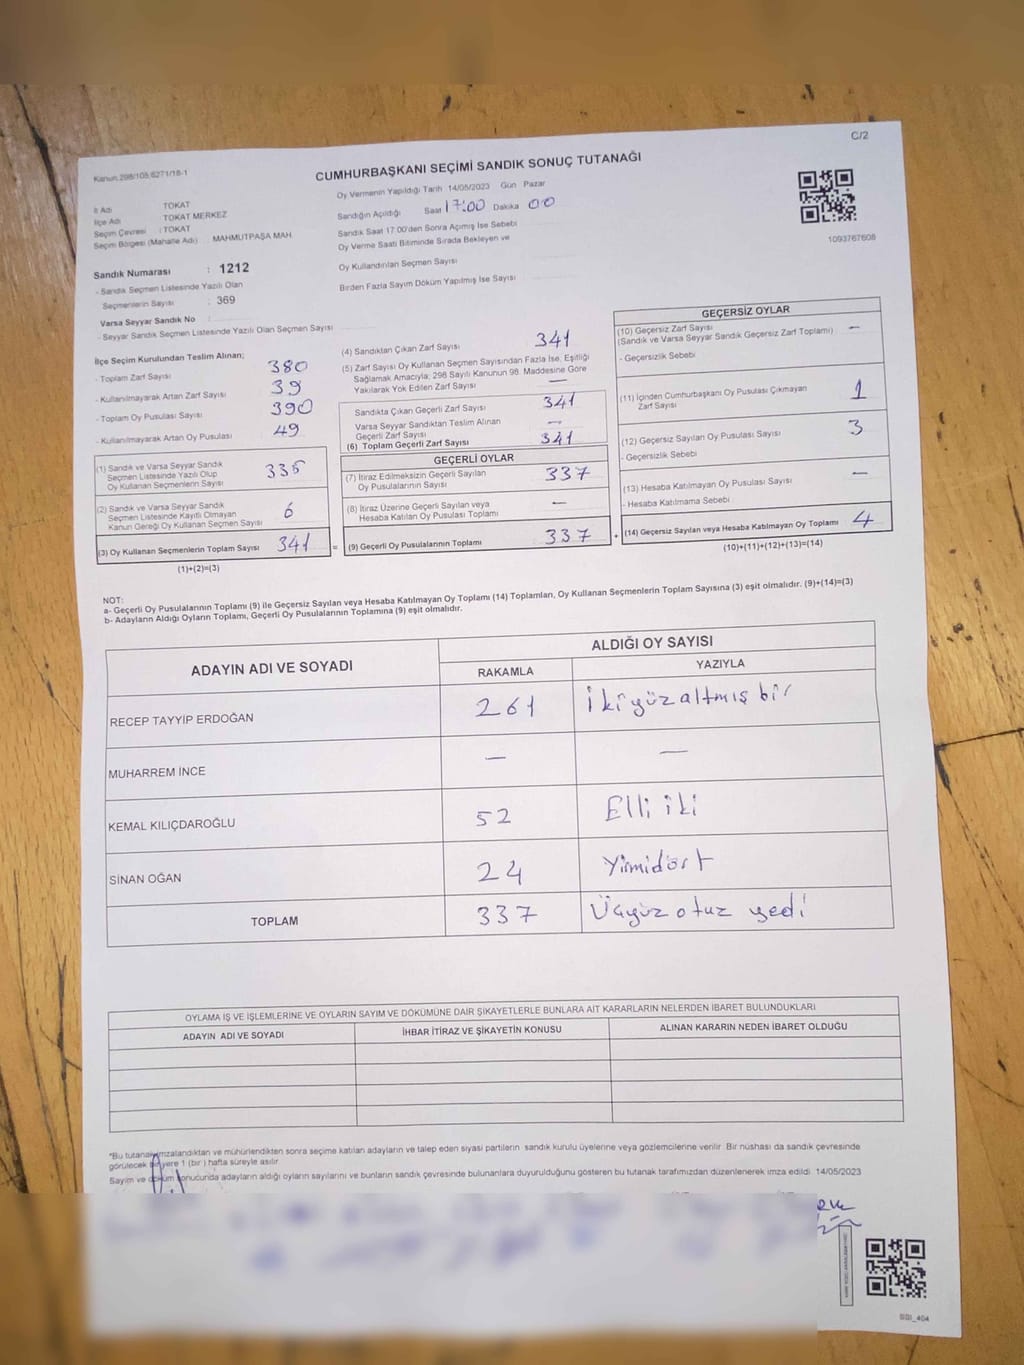 C/2
Kanun 298/105,6271/18-1
CUMHURBAŞKANI SEÇİMİ SANDIK SONUÇ TUTANAĞI
Oy Vermenin Yapıldığı Tarih 14/05/2023 Gün Pazar
İl Adı TOKAT
İlçe Adı TOKAT MERKEZ
Seçim Çevresi : TOKAT
Seçim Bölgesi (Mahalle Adı) : MAHMUTPAŞA MAH.
Sandığın Açıldığı Saat 17:00 Dakika 00
Sandık Saat 17:00'den Sonra Açımış İse Sebebi
Oy Verme Saati Bitiminde Sırada Bekleyen ve
Oy Kullandırılan Seçmen Sayısı
Birden Fazla Sayım Döküm Yapılmış İse Sayısı
1093767608
Sandık Numarası : 1212
- Sandık Seçmen Listesinde Yazılı Olan
Seçmenlerin Sayısı : 369
Varsa Seyyar Sandık No :
- Seyyar Sandık Seçmen Listesinde Yazılı Olan Seçmen Sayısı
İlçe Seçim Kurulundan Teslim Alınan;
- Toplam Zarf Sayısı 380
- Kullanılmayarak Artan Zarf Sayısı 39
- Toplam Oy Pusulası Sayısı 390
- Kullanılmayarak Artan Oy Pusulası 49
(1) Sandık ve Varsa Seyyar Sandık
Seçmen Listesinde Yazılı Olup
Oy Kullanan Seçmenlerin Sayısı 335
(2) Sandık ve Varsa Seyyar Sandık
Seçmen Listesinde Kayıtlı Olmayan
Kanun Gereği Oy Kullanan Seçmen Sayısı 6
(3) Oy Kullanan Seçmenlerin Toplam Sayısı 341
(1)+(2)=(3)
(4) Sandıktan Çıkan Zarf Sayısı 341
(5) Zarf Sayısı Oy Kullanan Seçmen Sayısından Fazla İse, Eşitliği
Sağlamak Amacıyla; 298 Sayılı Kanunun 98. Maddesine Göre
Yakılarak Yok Edilen Zarf Sayısı —
Sandıkta Çıkan Geçerli Zarf Sayısı 341
Varsa Seyyar Sandıktan Teslim Alınan
Geçerli Zarf Sayısı —
(6) Toplam Geçerli Zarf Sayısı 341
GEÇERLİ OYLAR
(7) İtiraz Edilmeksizin Geçerli Sayılan
Oy Pusulalarının Sayısı 337
(8) İtiraz Üzerine Geçerli Sayılan veya
Hesaba Katılan Oy Pusulası Toplamı —
= (9) Geçerli Oy Pusulalarının Toplamı 337
GEÇERSİZ OYLAR
(10) Geçersiz Zarf Sayısı —
(Sandık ve Varsa Seyyar Sandık Geçersiz Zarf Toplamı)
- Geçersizlik Sebebi
(11) İçinden Cumhurbaşkanı Oy Pusulası Çıkmayan
Zarf Sayısı 1
(12) Geçersiz Sayılan Oy Pusulası Sayısı 3
- Geçersizlik Sebebi
(13) Hesaba Katılmayan Oy Pusulası Sayısı —
- Hesaba Katılmama Sebebi
+ (14) Geçersiz Sayılan veya Hesaba Katılmayan Oy Toplamı 4
(10)+(11)+(12)+(13)=(14)
NOT:
a- Geçerli Oy Pusulalarının Toplamı (9) ile Geçersiz Sayılan veya Hesaba Katılmayan Oy Toplamı (14) Toplamları, Oy Kullanan Seçmenlerin Toplam Sayısına (3) eşit olmalıdır. (9)+(14)=(3)
b- Adayların Aldığı Oyların Toplamı, Geçerli Oy Pusulalarının Toplamına (9) eşit olmalıdır.
ADAYIN ADI VE SOYADI ALDIĞI OY SAYISI
RAKAMLA YAZIYLA
RECEP TAYYİP ERDOĞAN 261 İkiyüzaltmış bir
MUHARREM İNCE — —
KEMAL KILIÇDAROĞLU 52 Elli iki
SİNAN OĞAN 24 Yirmidört
TOPLAM 337 Üçyüz otuz yedi
OYLAMA İŞ VE İŞLEMLERİNE VE OYLARIN SAYIM VE DÖKÜMÜNE DAİR ŞİKAYETLERLE BUNLARA AİT KARARLARIN NELERDEN İBARET BULUNDUKLARI
ADAYIN ADI VE SOYADI İHBAR İTİRAZ VE ŞİKAYETİN KONUSU ALINAN KARARIN NEDEN İBARET OLDUĞU
*Bu tutanak imzalandıktan ve mühürlendikten sonra seçime katılan adayların ve talep eden siyasi partilerin sandık kurulu üyelerine veya gözlemcilerine verilir. Bir nüshası da sandık çevresinde
görülecek bir yere 1 (bir) hafta süreyle asılır.
Sayım ve döküm sonucunda adayların aldığı oyların sayılarını ve bunların sandık çevresinde bulunanlara duyurulduğunu gösteren bu tutanak tarafımızdan düzenlenerek imza edildi. 14/05/2023